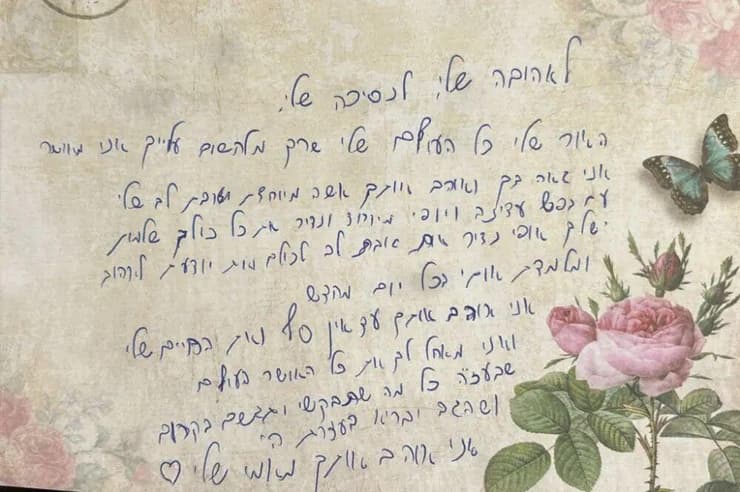 לאהובה שלי, לנסיכה שלי,
האור שלי כל העולם שלי שרק מלחשוב עלייך אני מאושר
אני גאה בך ואוהב אותך אשה מיוחדת וטובת לב שלי
עם נפש עדינה ויופי מיוחד ונדיר את כל כולך שלמות
יש לך אופי נדיר את נותנת לב לכולם ואת יודעת לאהוב
ומלמדת אותי בכל יום מחדש
אני אוהב אותך עד אין סוף ואת החיים שלי
ואני מאחל לך את כל האושר בעולם
שבעז"ה כל מה שתבקשי יתגשם בקרוב
ושהגב יבריא בעזרת ה'
אני אוהב אותך מאמי שלי ♡